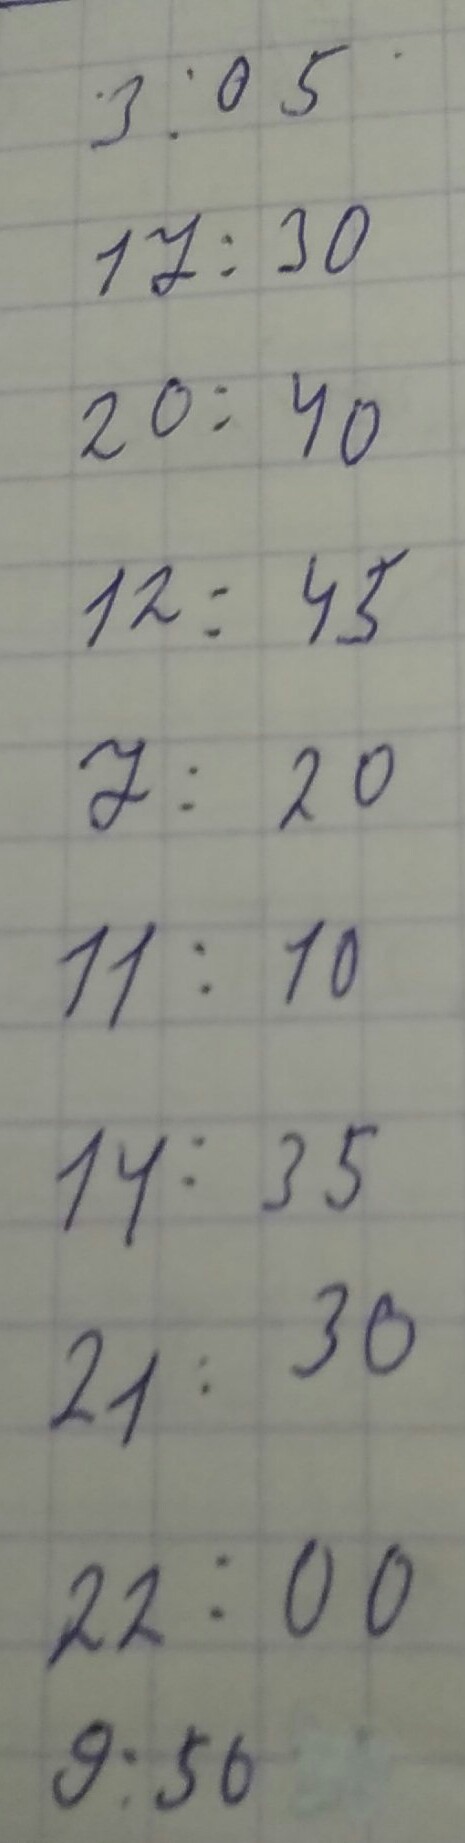 3:05
17:30
20:40
12:45
7:20
11:10
14:35
21:30
22:00
9:50